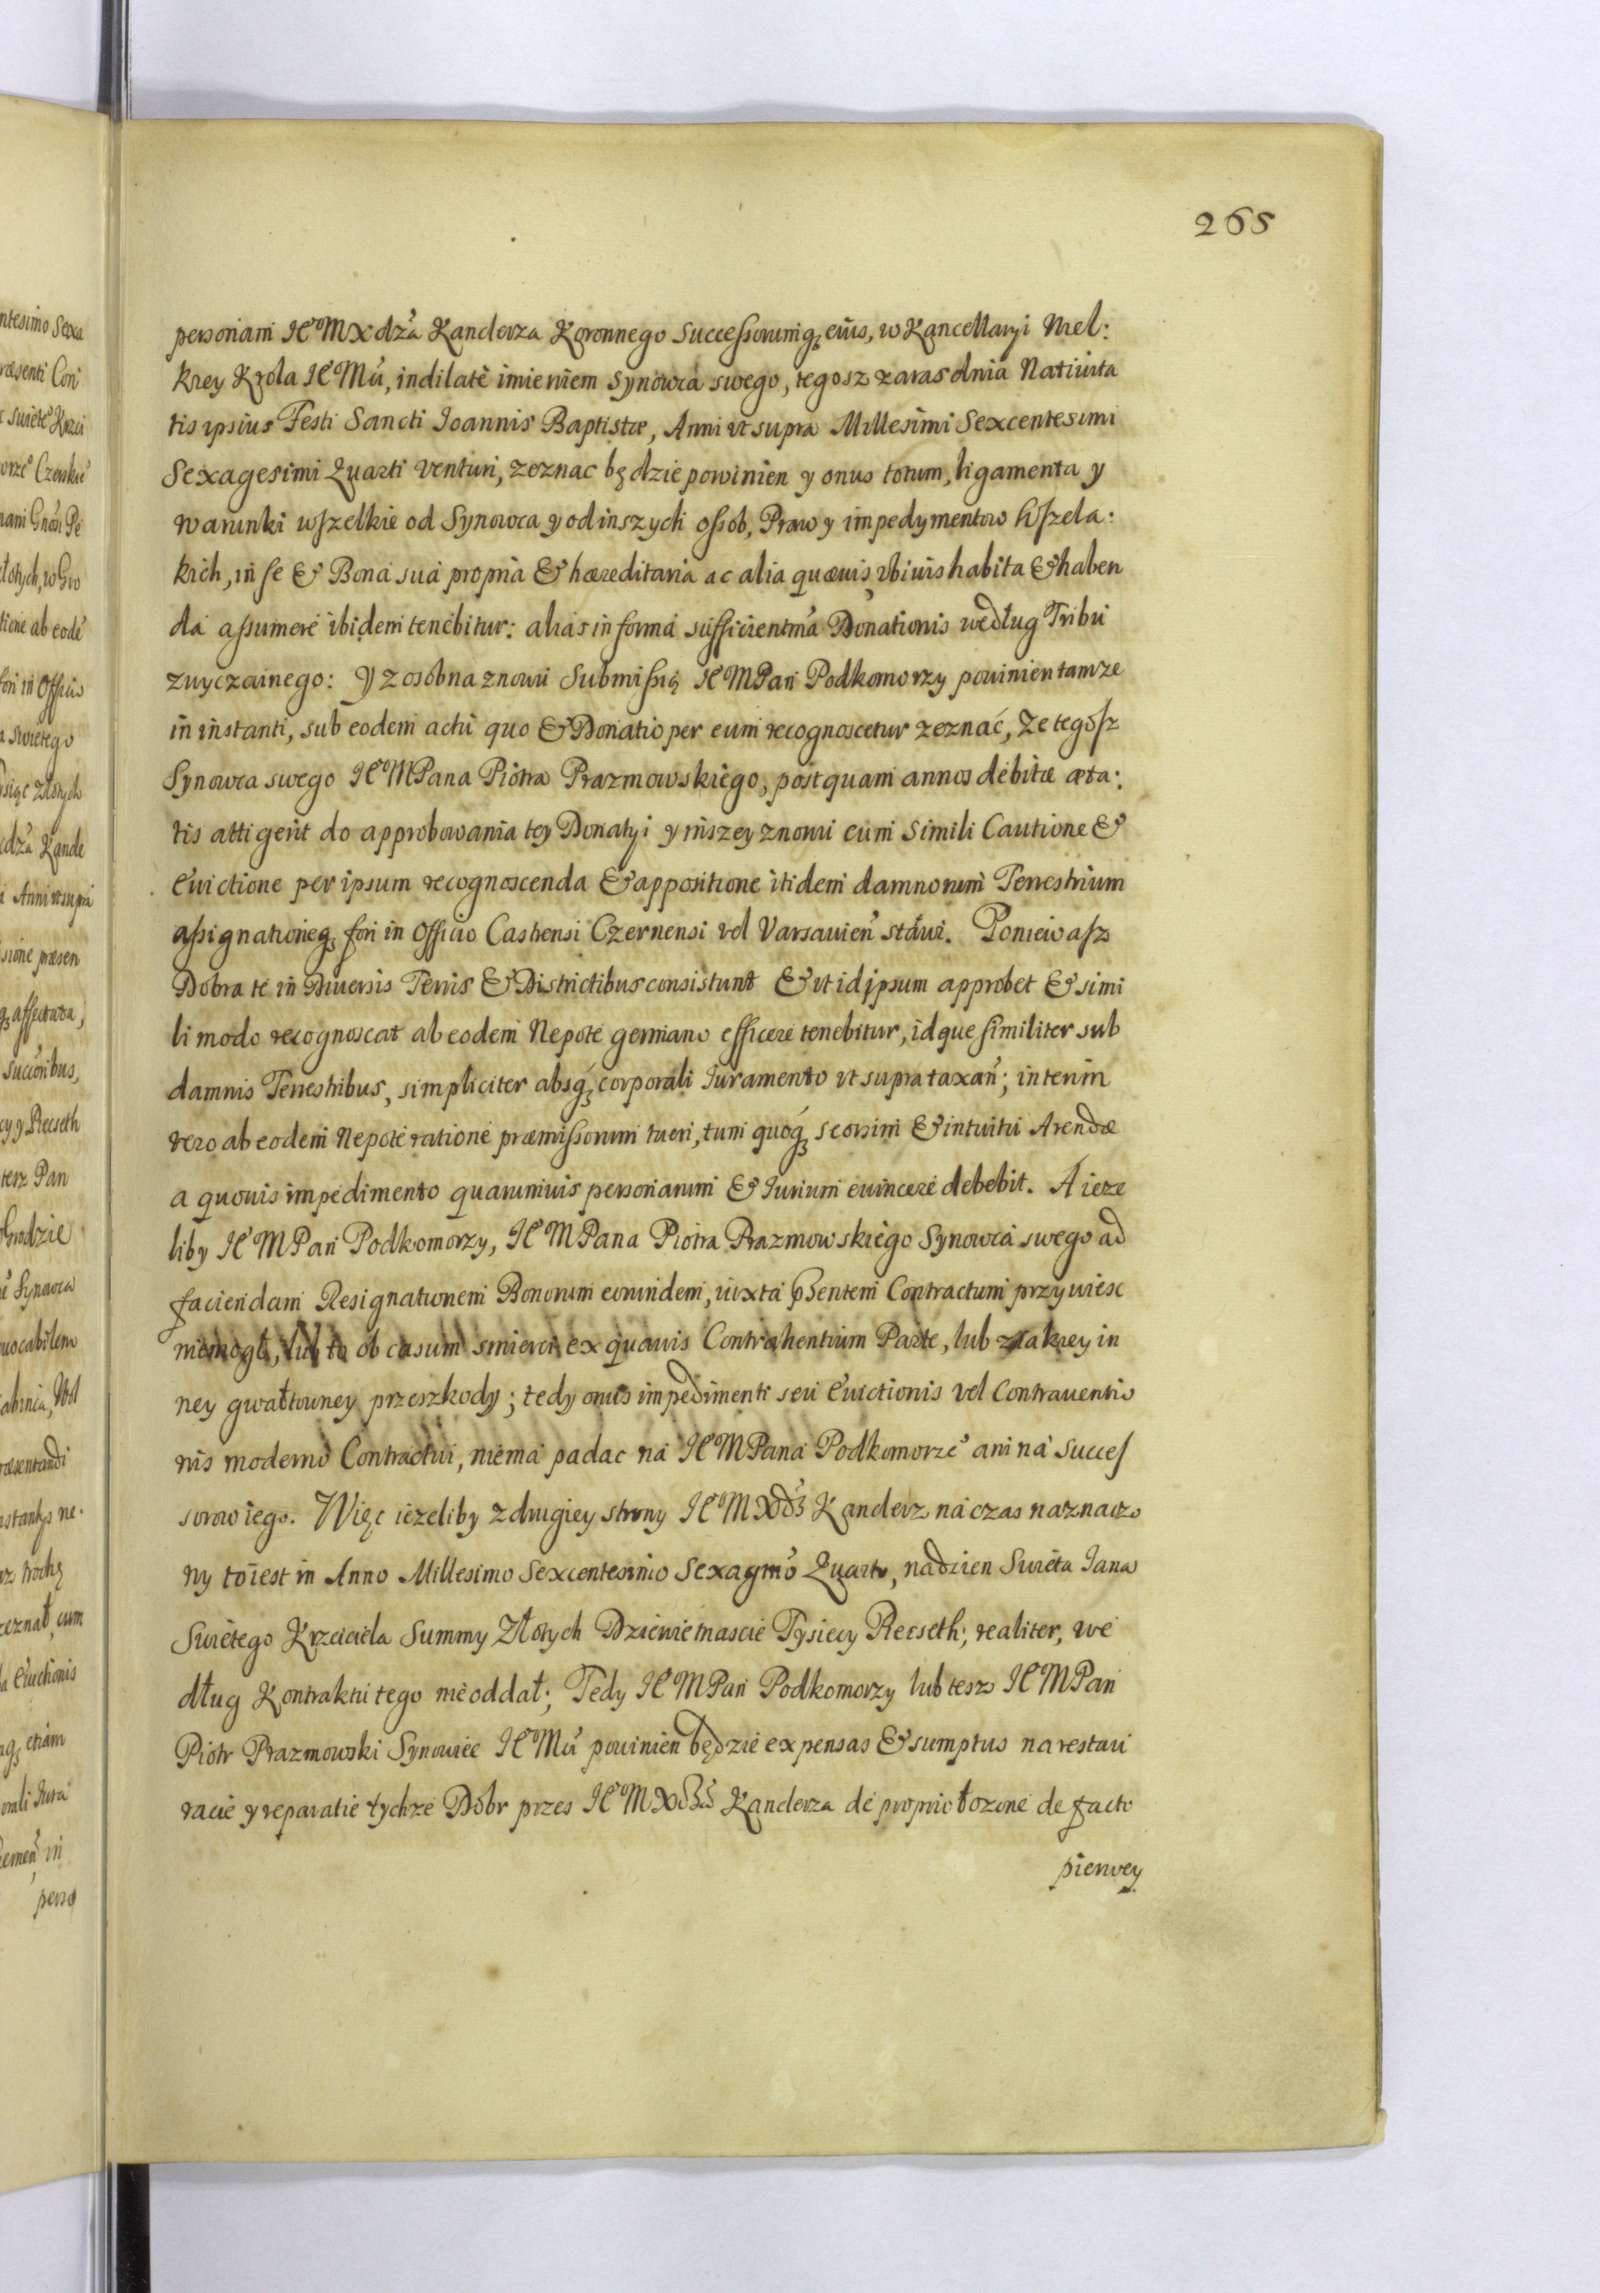 265
personam JE°M Xdz'a Kanclerza Koronnego Successorumq; eius, w Kancellaryi Miel:
krey Krola JE°Mu', indilatè imieniem Synowca swego, tegosz zaras dnia Natiuita
tis ipsius Festi Sancti Ioannis Baptistæ, Anni vt supra Millesimi Sexcentesimi
Sexagesimi Quarti venturi, zeznac będzie powinien y onus totum, ligamenta y
warunki wszelkie od Synowca y od inszych ossób, Praw y impedymentow wszela:
kich, in se & Bona sua propria & hæreditaria ac alia quæuis vbiuis habita & haben
da assumere ibidem tenebitur: alias in forma sufficientma' Donationis według Tribu
zwyczainego: Y z osobna znowu Submissią JE°M Pan Podkomorzy powinien tamze
in instanti, sub eodem actu quo & Donatio per eum recognoscetur zeznać, Ze tegosz
Synowca swego JE°M Pana Piotra Prazmowskiego, postquam annos debitæ æta:
tis attigerit do approbowania tey Donatyi y inszey znowu cum simili Cautione &
Euictione per ipsum recognoscenda & appositione itidem damnorum Terrestrium
assignationeq; fori in Officio Castrensi Czernensi vel Varsauien' stawi. Poniewasz
Dobra te in Diuersis Terris & Districtibus consistunt & vt id ipsum approbet & simi
li modo recognoscat ab eodem Nepote germano efficere tenebitur, idque similiter sub
damnis Terrestribus, simpliciter absq; corporali Iuramento vt supra taxan'; interim
vero ab eodem Nepote ratione præmissorum tueri, tum quoq; seorsim & intuitu Arendæ
a quouis impedimento quarumuis personarum & Iurium euincere debebit. A ieze
liby JE°M Pan Podkomorzy, JE°M Pana Piotra Prazmowskiego Synowca swego ad
faciendam Resignationem Bonorum eorundem, iuxta pñsentem Contractum przywiesc
niemogł, lub to ob casum smierci ex quauis Contrahentium Parte, lub z iakiey in
ney gwałtowney przeszkody; tedy onus impedimenti seu Euictionis vel Contrauentio
nis moderno Contractui, niema padac na JE°M Pana Podkomorze' ani na Succes
sorow iego. Więc iezeliby z drugiey strony JE°M Xdz' Kanclerz na czas naznaczo
ny to iest in Anno Millesimo Sexcentesimo Sexagmo' Quarto, na dzien Swieta Iana
Swiętego Krzciciela Summy Złotych Dziewietnascie Tysiecy Pięcseth; realiter, we
dług Kontraktu tego nieoddał; Tedy JE°M Pan Podkomorzy lub tesz JE°M Pan
Piotr Prazmowski Synowiec JE°Mu' powinien będzie expensas & sumptus na restau
racie y reparatie tychze Dobr przes JE°M Xdza' Kanclerza de proprio łozone de facto
pierwey